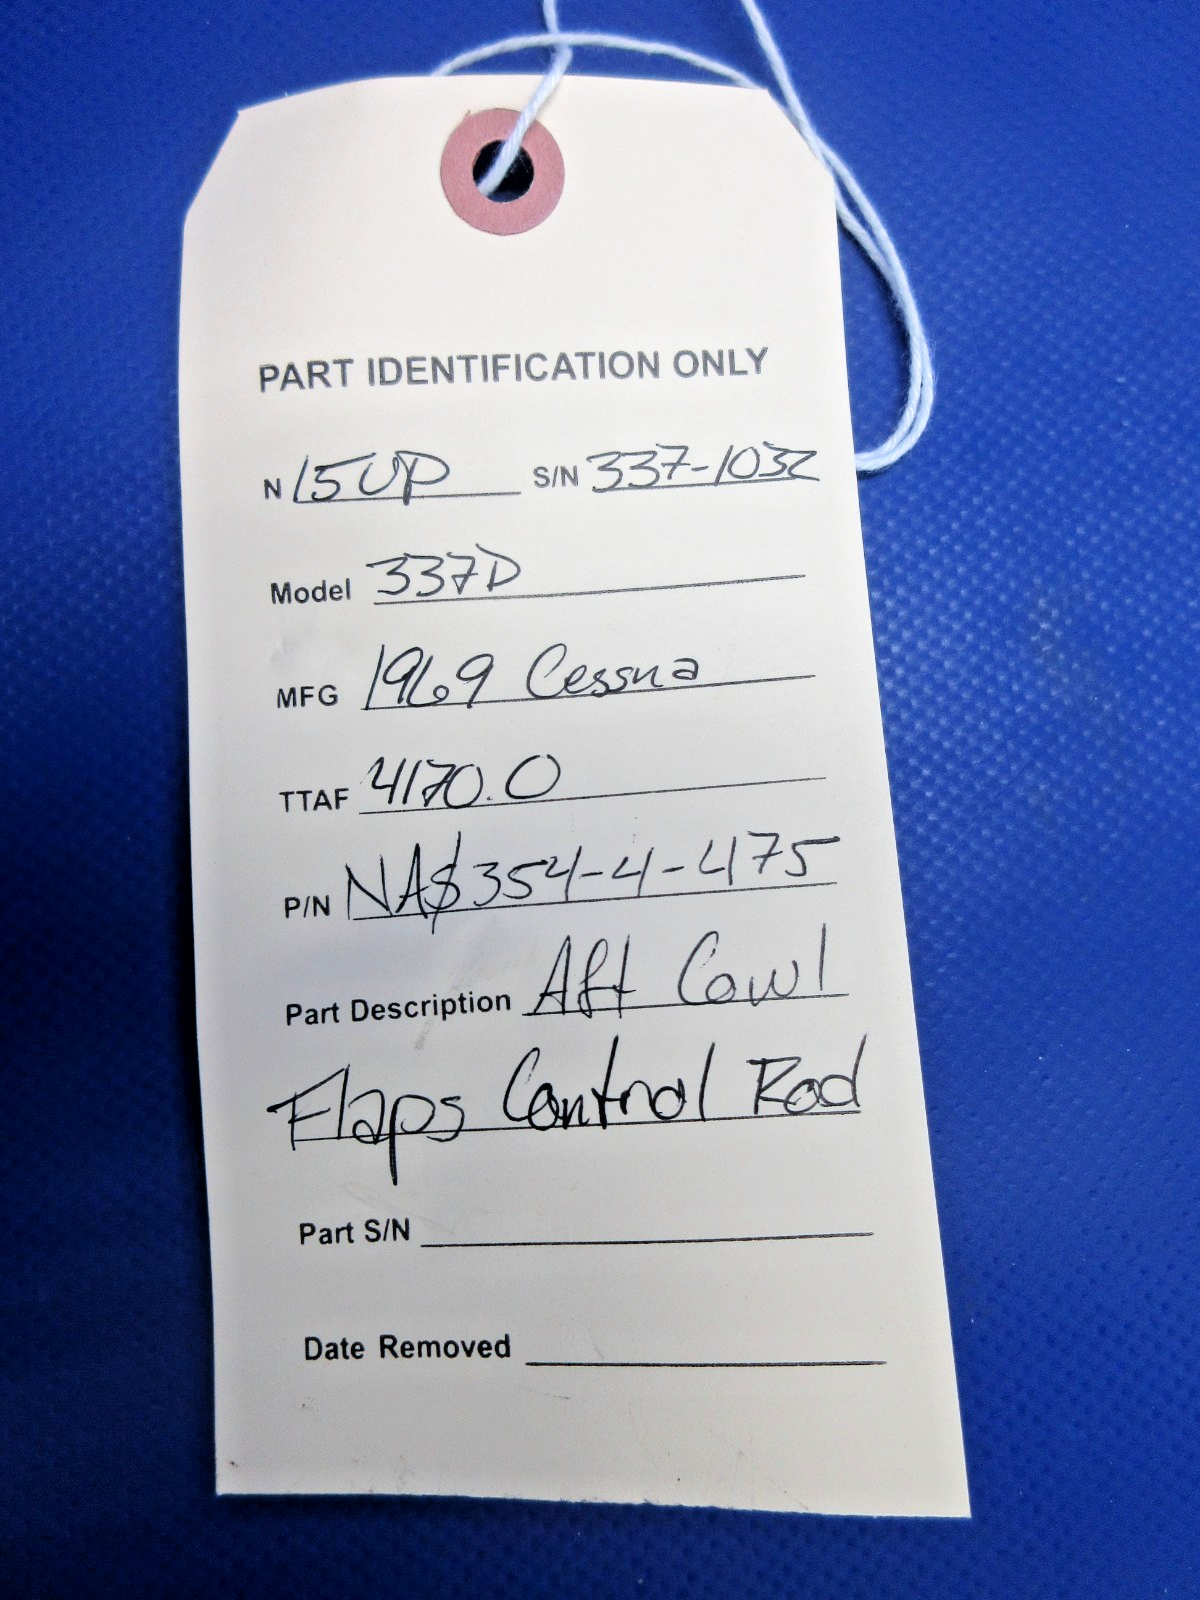 PART IDENTIFICATION ONLY
N 15UP S/N 337-1032
Model 337D
MFG 1969 Cessna
TTAF 4170.0
P/N NAS354-4-475
Part Description Aft Cowl
Flaps Control Rod
Part S/N
Date Removed